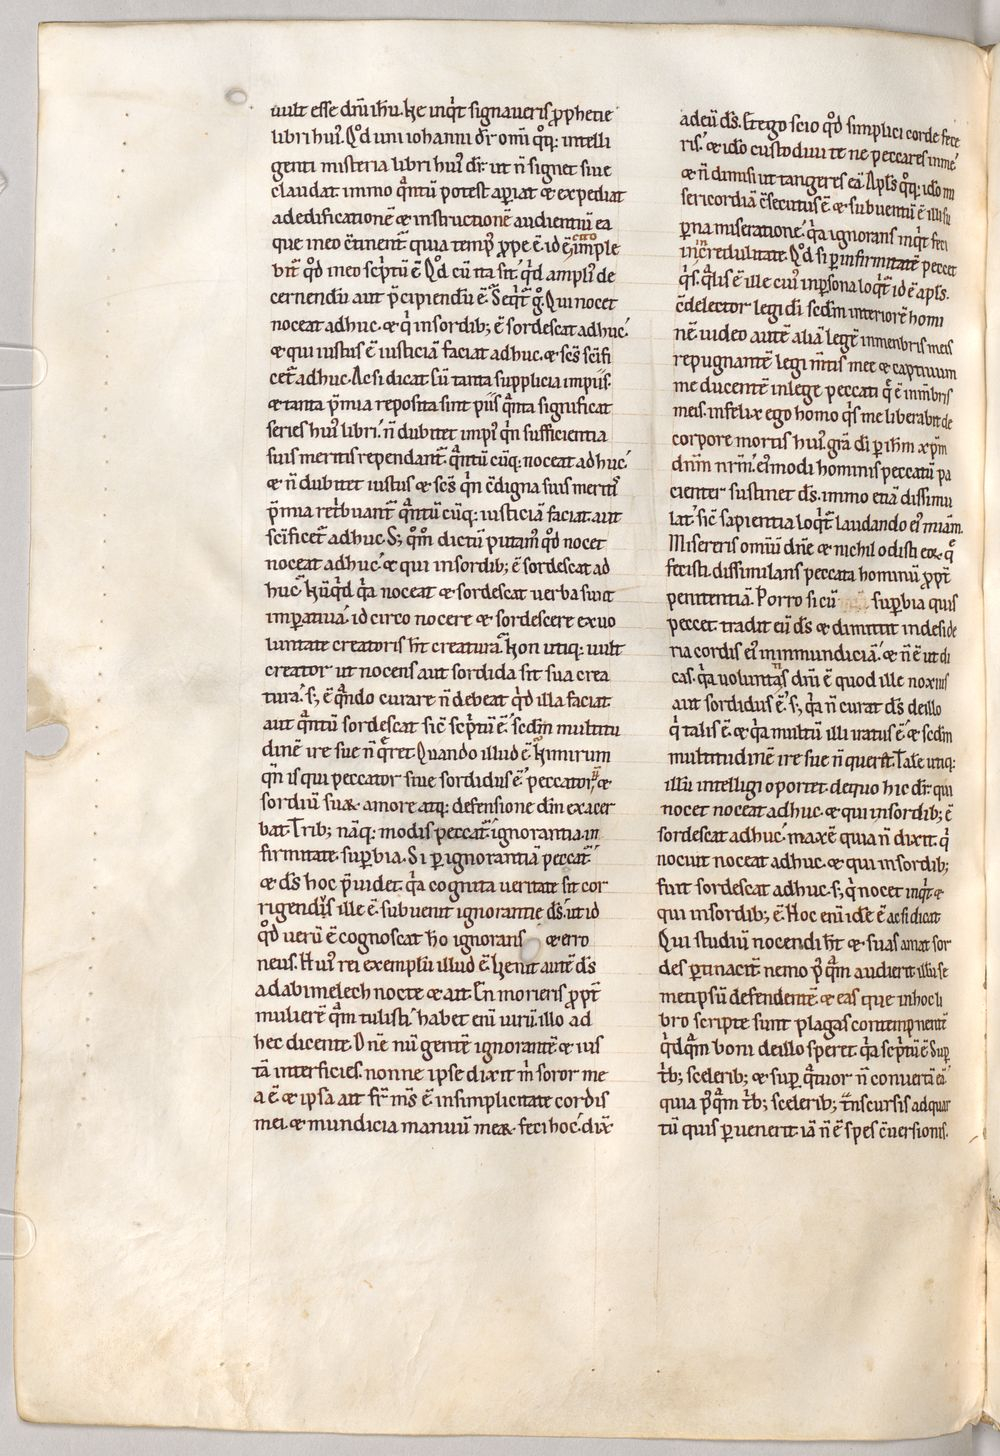 uult esse dn̄m ih̄u. Ne inq̇t signaueris ꝓphetie
libri huiꝰ. Qd̊ uni iohanni dr̄ om̄i qͦꝗ: intelli
genti misteria libri huiꝰ dr̄. ut n̄ signet siue
claudat immo qᷓntū potest aꝑiat ⁊ expediat
adedificationē ⁊ instructionē audientiū ea
que in eo ↄ̄tinent᷑ quia tempꝰ ꝓpe ē. id ē cito imple
bit᷑ qd̊ in eo sc̄ptū ē. Qd̊ cū ita sit. qḋ ampliꝰ de
cernendū aut p̄cipiendū ē. Seqͥt᷑ gͦ. Qui nocet
noceat adhuc. ⁊ qͥ insordib; ē sordescat adhuc.
⁊ qui iustus ē iusticiā faciat adhuc. ⁊ sc̄s sc̄ifi
cet᷑ adhuc. Ac si dicat. Cū tanta supplicia impiis.
⁊ tanta p̄mia reposita sint piis qᷓnta significat
series huiꝰ libri. n̄ dubitet impiꝰ qn̄ sufficientia
suis meritis rependant᷑. qᷓntū cūꝗ: noceat adhuc.
⁊ n̄ dubitet iustus ⁊ sc̄s qn̄ ↄ̄digna suis meritis
p̄mia retͥbuant᷑ qᷓntū cūꝗ: iusticiā faciat. aut
sc̄ificet᷑ adhuc. S; qͦm̄ dictū putamꝰ qd̊ nocet
noceat adhuc. ⁊ qui insordib; ē sordescat ad
huc. Nūqͥd qᷓa noceat ⁊ sordescat uerba sunt
imꝑatiua. idcirco nocere ⁊ sordescere ex uo
luntate creatoris h̄t creatura. Non utiꝗ: uult
creator ut nocens aut sordida sit sua crea
tura. s; ē qᷓndo curare n̄ debeat qͥd illa faciat
aut qᷓntū sordescat sic̄ sc̄ptū ē. scd̄m multitu
dinē ire sue n̄ qͣret. Quando illud ē. Nimirum
qn̄ is qui peccator siue sordidus ē. peccatorū ⁊
sordiū suaꝝ amore atꝗ: defensione dm̄ exacer
bat. Trib; nāꝗ: modis peccat᷑. ignorantia. in
firmitate. suꝑbia. Si ꝑ ignorantiā peccat᷑
⁊ ds̄ hoc p̄uidet. qᷓa cognita ueritate sit cor
rigendus ille ē. subuenit ignorantie ds̄. ut id
qd̊ uerū ē cognoscat hō ignorans ⁊ erro
neus. Huiꝰ rei exemplū illud ē. Uenit autē ds̄
ad abimelech nocte ⁊ ait. En morieris ꝓpt᷑
mulierē qᷓm tulisti. habet enī uirū. illo ad
hec dicente. Dn̄e nū gentē ignorantē ⁊ ius
tā interficies. nonne ipse dixit m̄ soror me
a ē ⁊ ipsa ait fr̄ m̄s ē. in simplicitate cordis
mei. ⁊ mundicia manuū meaꝝ feci hoc. dix̄
ad eū ds̄. Et ego scio qd̊ simplici corde fece
ris. ⁊ idō custodiui te ne peccares inme
⁊ n̄ dimisi ut tangeres eā. Apls̄ qͦꝗ: idō mi
sericordiā ↄ̄secutus ē ⁊ subuentū ē illi su
ꝑna miseratione. qᷓa ignorans inqͥt feci
in incredulitate. Qd̊ si ꝑ infirmitatē peccet
qͥs. qᷓlis ē ille cuiꝰ inꝑsona loqͥt᷑ id ē apls̄.
ↄ̄delector legi dī scd̄m interiorē homi
nē. uideo autē aliā legē inmenbris meis
repugnantē legi m̄tis mee ⁊ captiuum
me ducentē inlege peccati qͤ ē inm̄bris
meis. infelix ego homo qͥs me liberabit de
corpore mortis huiꝰ. gr̄a dī ꝑ ih̄m xp̄m
dn̄m nr̄m. eiꝰmodi hominis peccatū pa
cienter sustinet ds̄. immo etiā dissimu
lat. sic̄ sapientia loqͥt᷑ laudando eiꝰ miām.
Misereris omniū dn̄e ⁊ nichil odisti eoꝝ qͤ
fecisti. dissimulans peccata hominū ꝓpt᷑
penitentiā. Porro si cū suꝑbia quis
peccet. tradit eū ds̄ ⁊ dimittit indeside
ria cordis eiꝰ ininmundiciā. ⁊ n̄ ē ut di
cas. qᷓa uoluntas dn̄i ē quod ille noxius
aut sordidus ē. s; qᷓa n̄ curat ds̄ de illo
qͥ talis ē. ⁊ qᷓa multū illi iratus ē. ⁊ scd̄m
multitudinē ire sue n̄ querit. Talē utiꝗ:
illū intelligi oportet. de quo hic dr̄. qui
nocet noceat adhuc. ⁊ qui insordib; ē
sordescat adhuc. maxē quia n̄ dixit. qͥ
nocuit noceat adhuc. ⁊ qui insordib;
fuit sordescat adhuc. s; qͥ nocet inqͥt ⁊
qui insordib; ē. Hoc enī idē ē ac si dicat
Qui studiū nocendi h̄t ⁊ suas amat sor
des ꝑtinacit᷑. nemo p̄ qᷓm audierit illū se
metipsū defendentē. ⁊ eas que in hoc li
bro scripte sunt plagas contempnentē
qͥdqᷓm boni de illo speret. qᷓa sc̄ptū ē. Suꝑ
tͥb; scelerib; ⁊ suꝑ qᷓtuor n̄ conuertā eū.
quia p̄qᷓm tͥb; scelerib; tᷓnscursis ad quar
tū quis ꝑuenerit. iā n̄ ē spes ↄ̄uersionis.